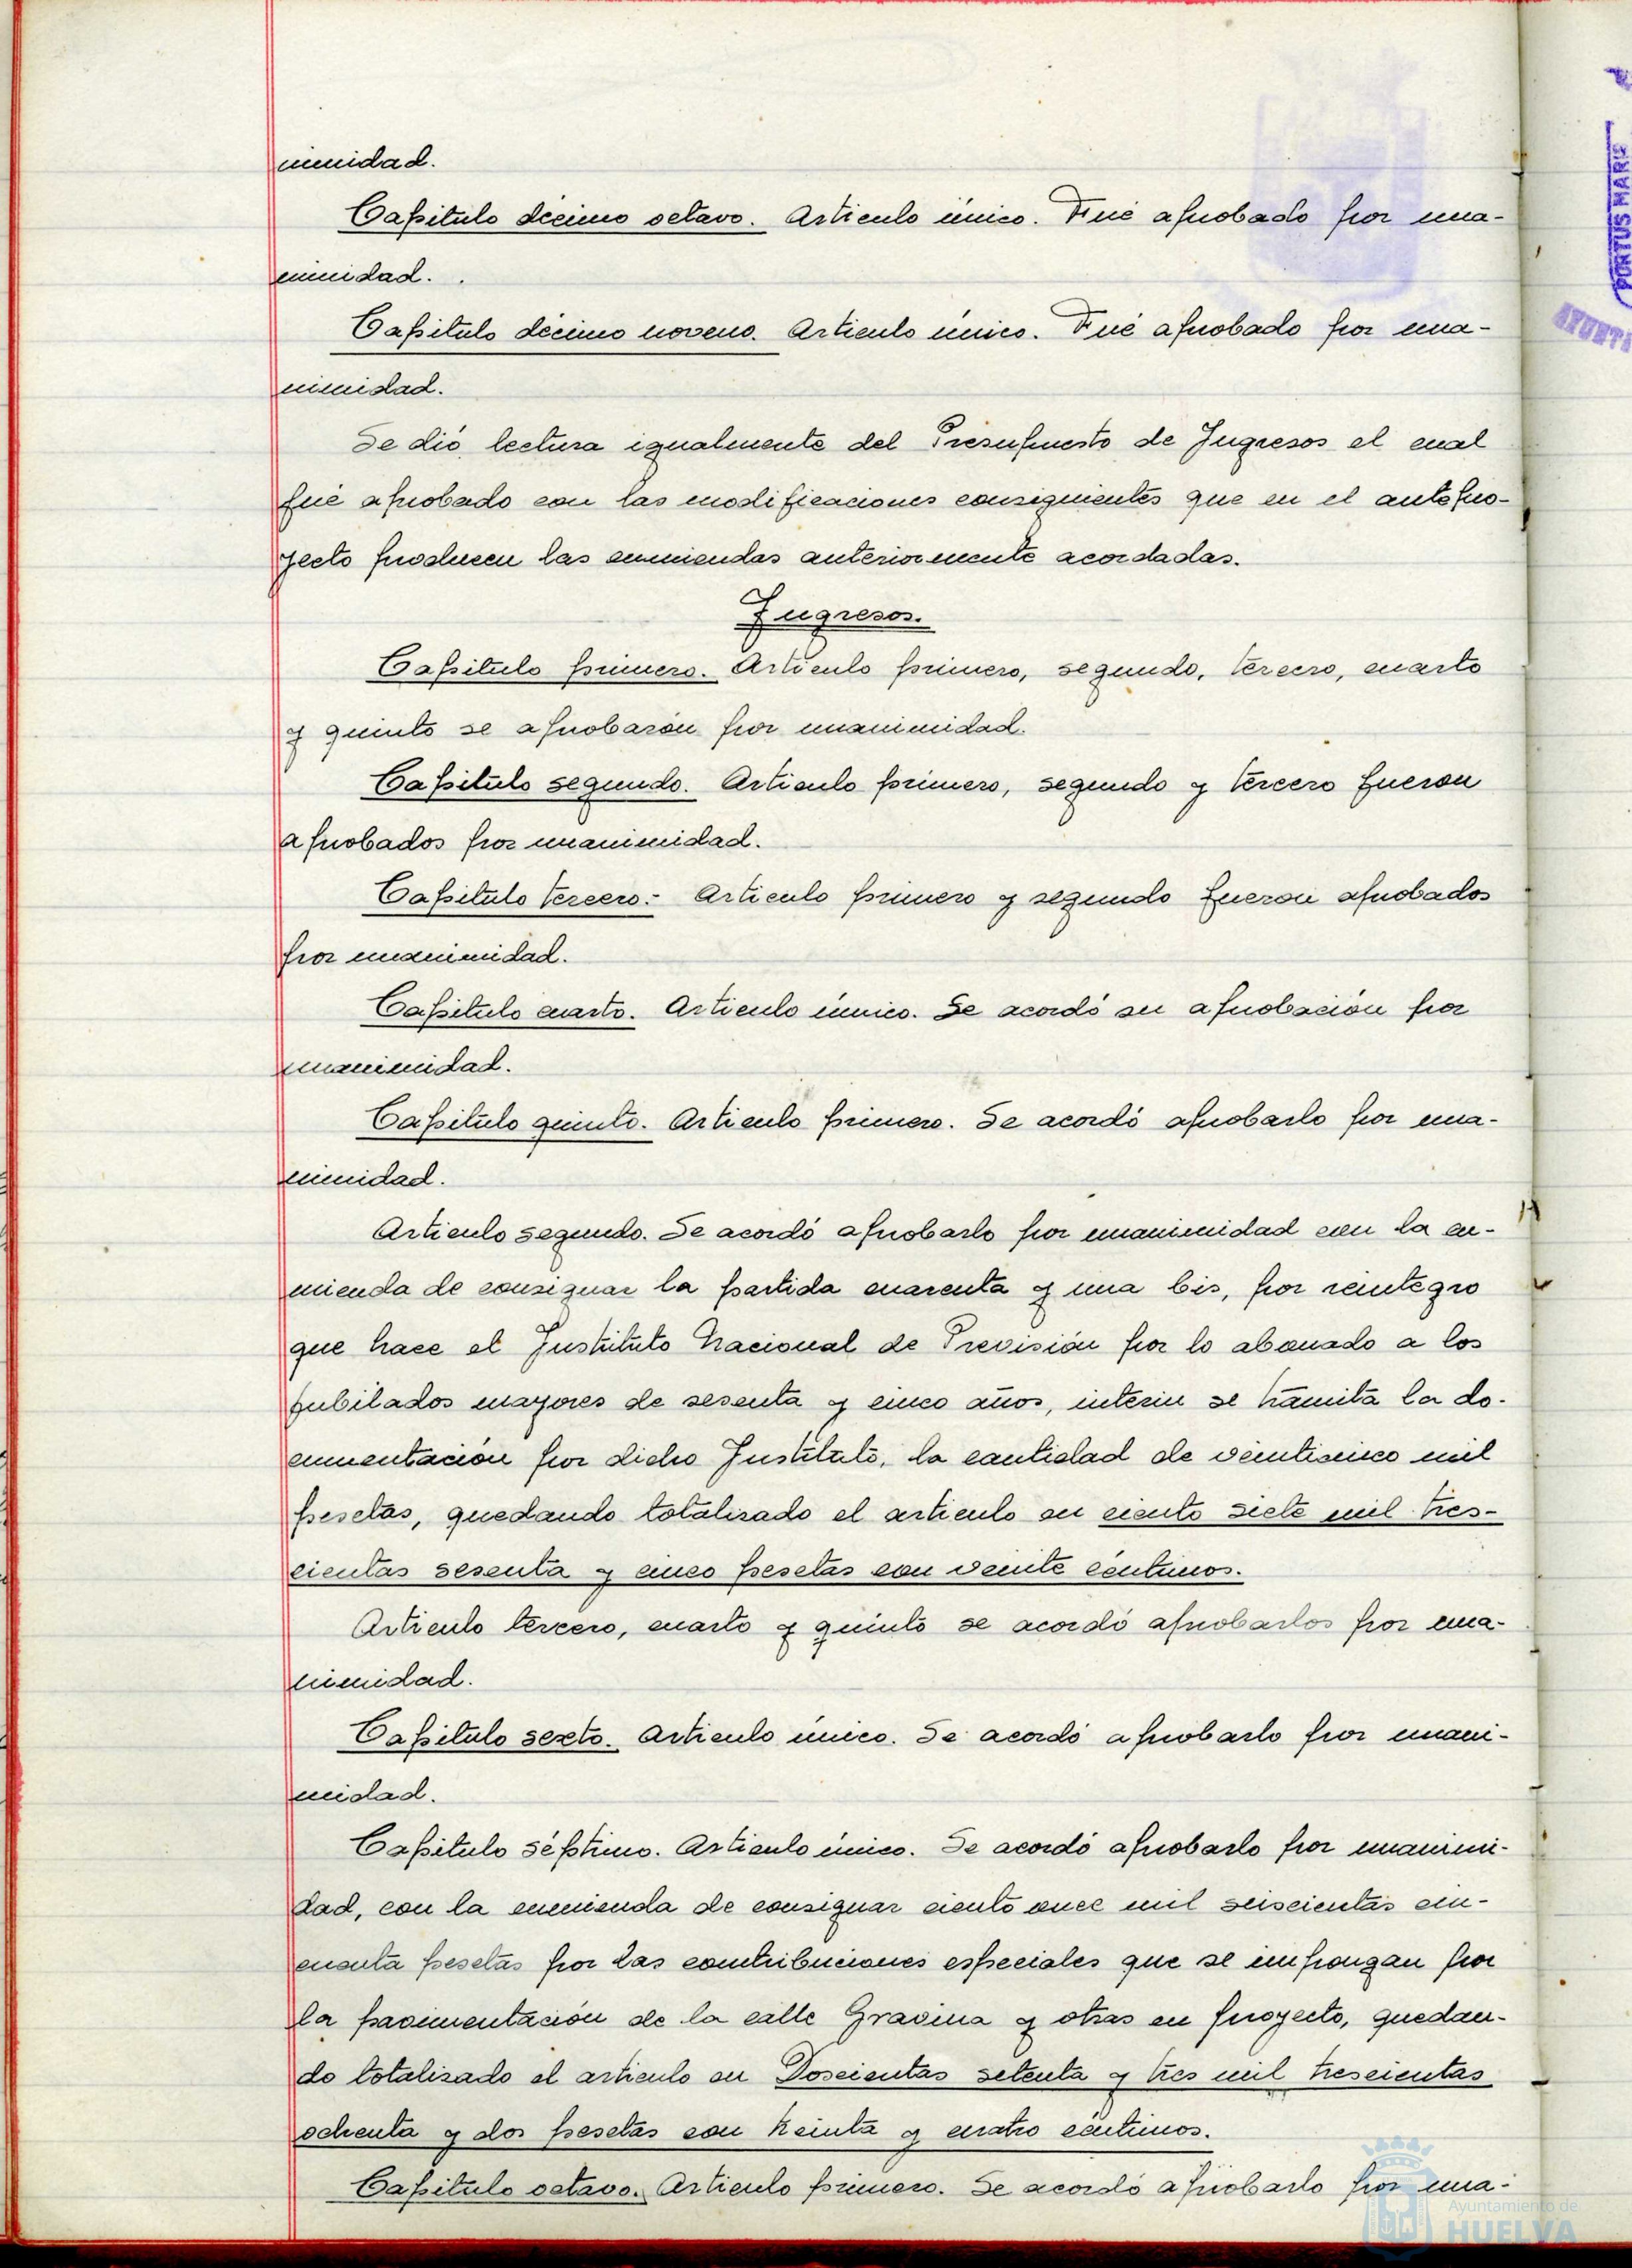 nimidad.
Capitulo décimo octavo. Articulo único. Fué aprobado por una-
nimidad.
Capitulo décimo noveno. Articulo único. Fué aprobado por una-
nimidad.
Se dió lectura igualmente del Presupuesto de Ingresos el cual
fué aprobado con las modificaciones consiguientes que en el antepro-
yecto producen las enmiendas anteriormente acordadas.
Ingresos.
Capitulo primero. Articulo primero, segundo, tercero, cuarto
y quinto se aprobarón por unanimidad.
Capitulo segundo. Articulo primero, segundo y tercero fueron
aprobados por unanimidad.
Capitulo tercero.- Articulo primero y segundo fueron aprobados
por unanimidad.
Capitulo cuarto. Articulo único. Se acordó su aprobación por
unanimidad.
Capitulo quinto. Articulo primero. Se acordó aprobarlo por una-
nimidad.
Articulo segundo. Se acordó aprobarlo por unanimidad con la en-
mienda de consignar la partida cuarenta y una bis, por reintegro
que hace el Instituto Nacional de Previsión por lo abonado a los
jubilados mayores de sesenta y cinco años, interin se tramita la do-
cumentación por dicho Instituto, la cantidad de veinticinco mil
pesetas, quedando totalizado el articulo en ciento siete mil tres-
cientas sesenta y cinco pesetas con veinte céntimos.
Articulo tercero, cuarto y quinto se acordó aprobarlos por una-
nimidad.
Capitulo sexto. Articulo único. Se acordó aprobarlo por unani-
midad.
Capitulo séptimo. Articulo único. Se acordó aprobarlo por unanimi-
dad, con la enmienda de consignar ciento once mil seiscientas cin-
cuenta pesetas por las contribuciones especiales que se impongan por
la pavimentación de la calle Gravina y otras en proyecto, quedan-
do totalizado el articulo en Doscientas setenta y tres mil trescientas
ochenta y dos pesetas con treinta y cuatro céntimos.
Capitulo octavo. Articulo primero. Se acordó aprobarlo por una-
PORTUS MARIS
AYUNTA
Ayuntamiento de
HUELVA